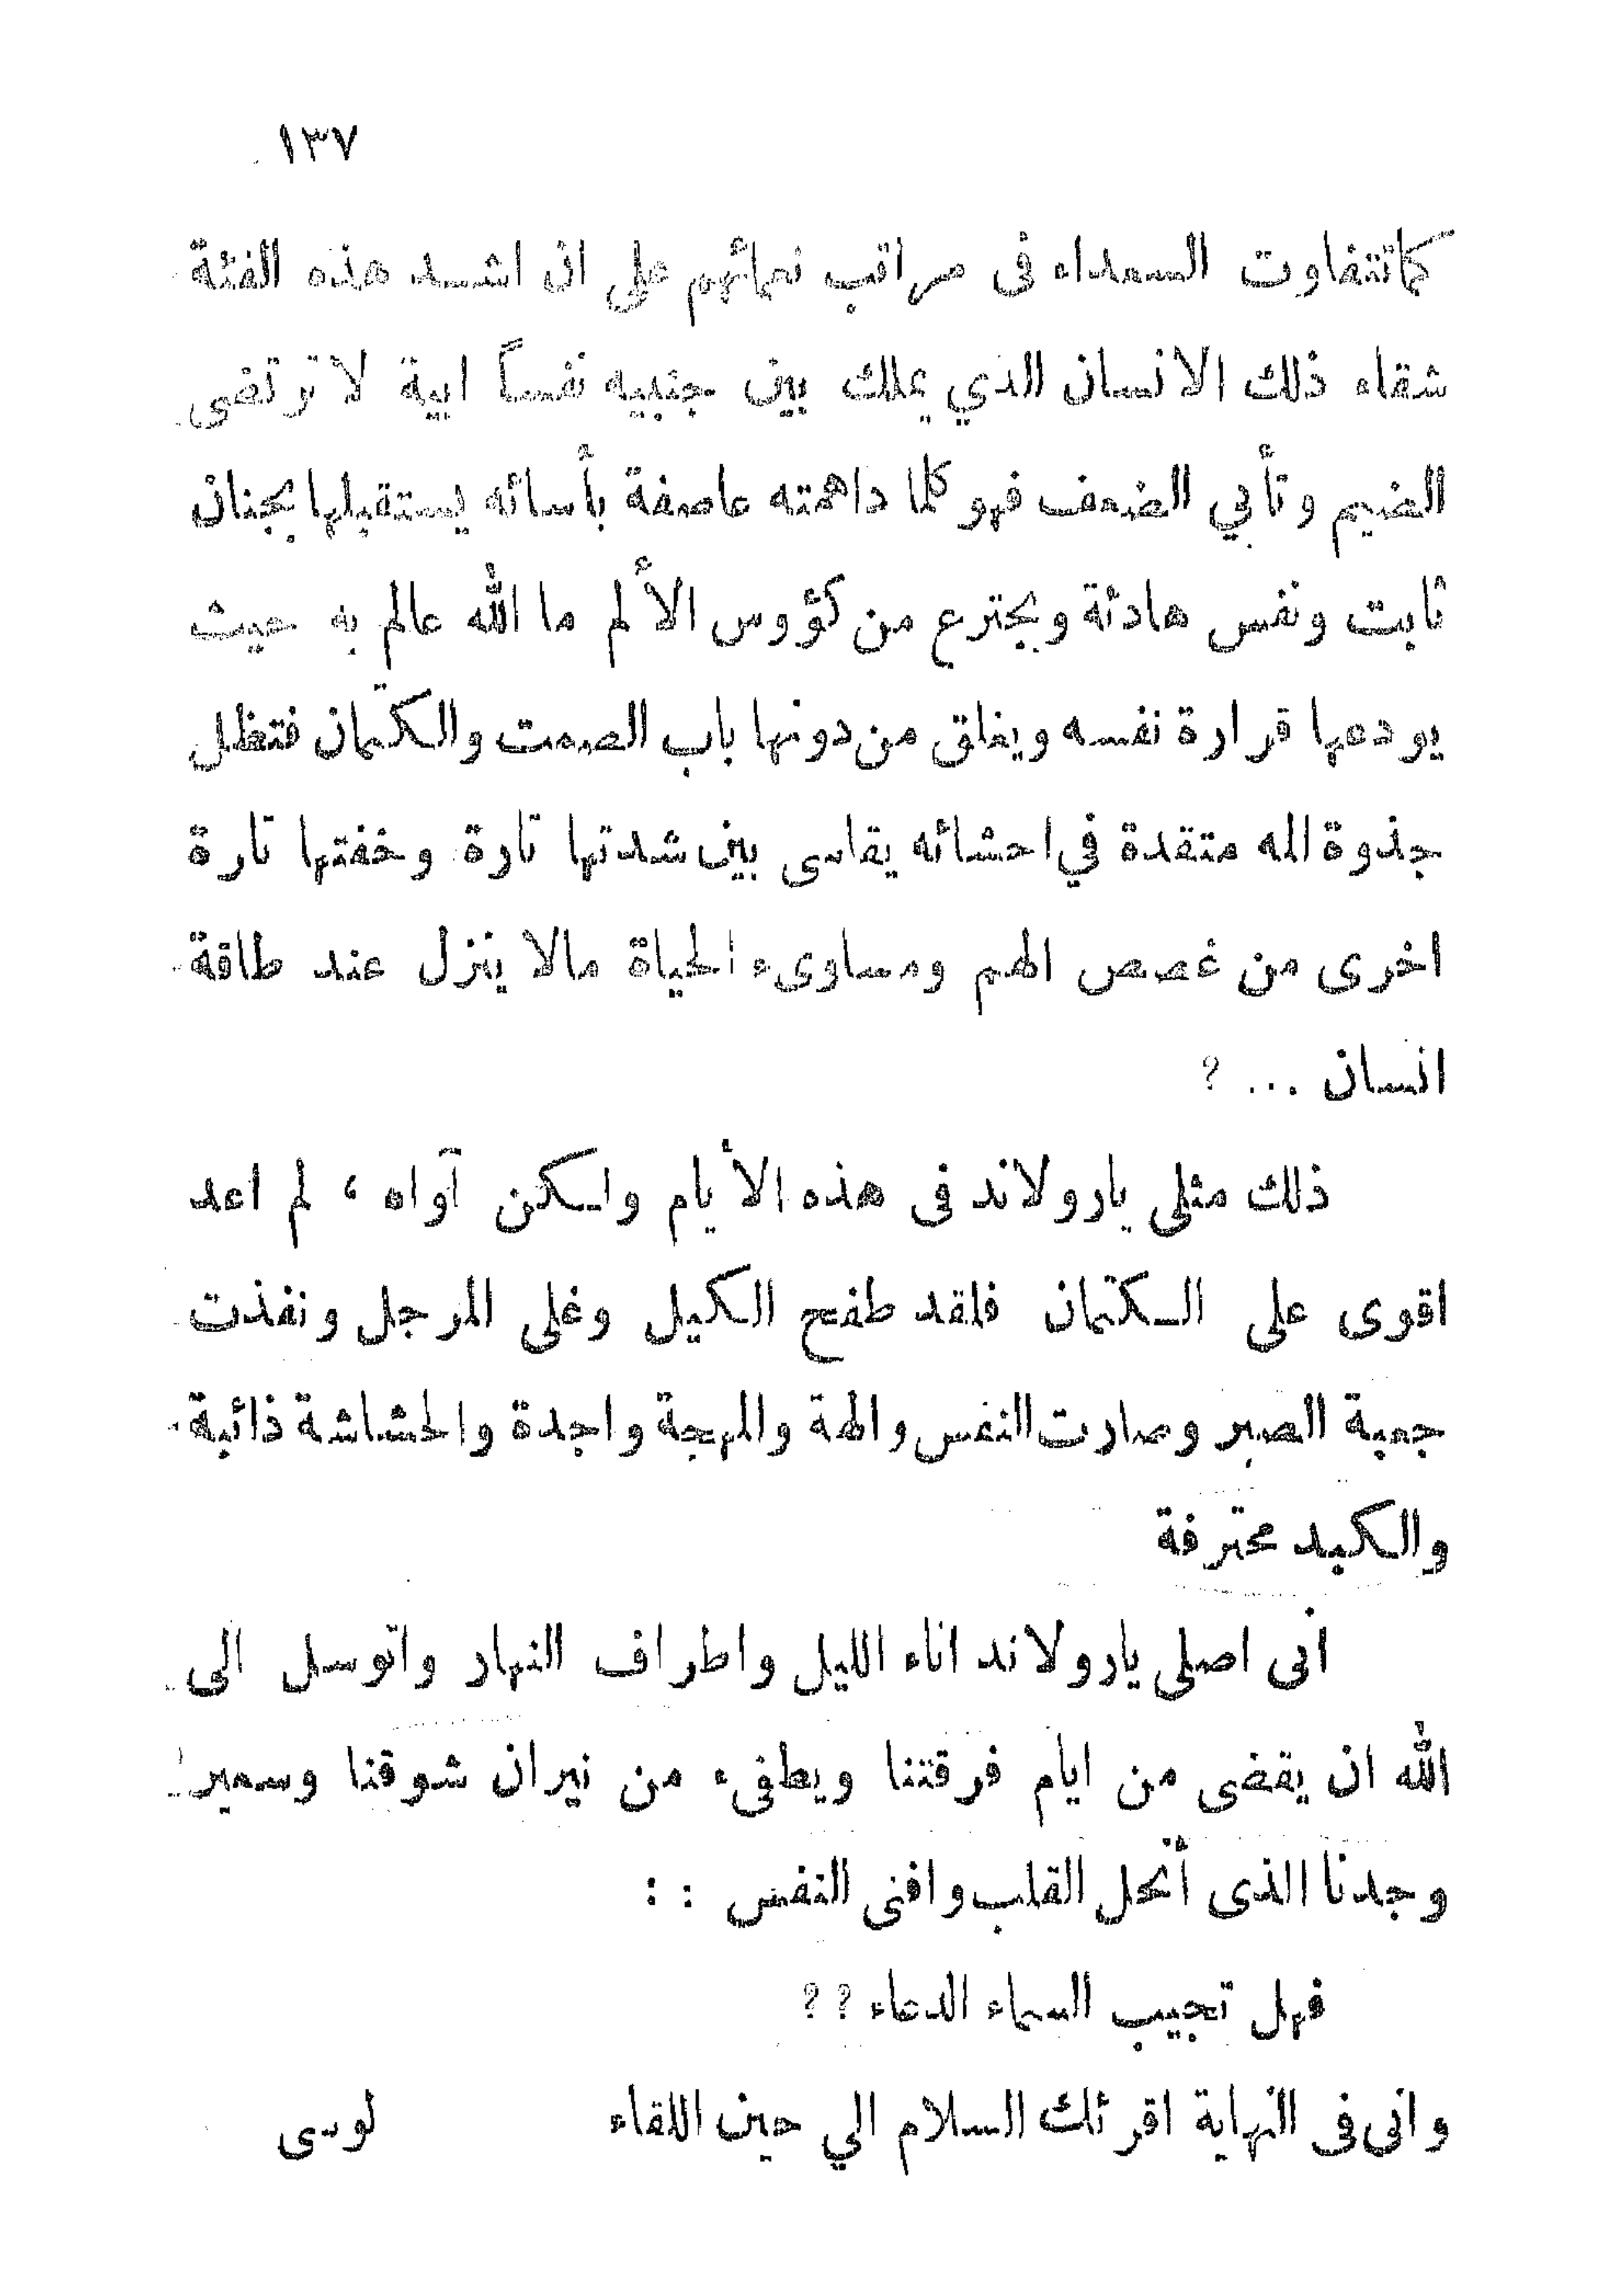 ١٣٧
كما تتفاوت السعداء فى مراتب نعمائهم على ان اشد هذه الفئة
شقاء ذلك الانسان الذي يملك بين جنبيه نفساً ابية لا ترتضى
الضيم وتأبي الضعف فهو كلما داهمته عاصفة بأسائه يستقبلها بجنان
ثابت ونفس هادئة ويجترع من كؤوس الألم ما الله عالم به حيث
يودعها قرارة نفسه ويغلق من دونها باب الصمت والكتمان فتظل
جذوة المه متقدة في احشائه يقاسى بين شدتها تارة وخفتها تارة
اخرى من غصص الهم ومساوىء الحياة مالا ينزل عند طاقة
انسان ... ؟
ذلك مثلى يارولاند فى هذه الأيام ولكن آواه ، لم اعد
اقوى على الكتمان فلقد طفح الكيل وغلى المرجل ونفذت
جعبة الصبر وصارت النفس والهة والمهجة واجدة والحشاشة ذائبة
والكبد محترفة
أنى اصلى يارولاند اناء الليل واطراف النهار واتوسل الى
الله ان يقضى من ايام فرقتنا ويطفىء من نيران شوقنا وسعير
وجدنا الذى أنحل القلب وافنى النفس : :
فهل تجيب السماء الدعاء ؟ ؟
وانى فى النهاية اقرئك السلام الي حين اللقاء لوسى